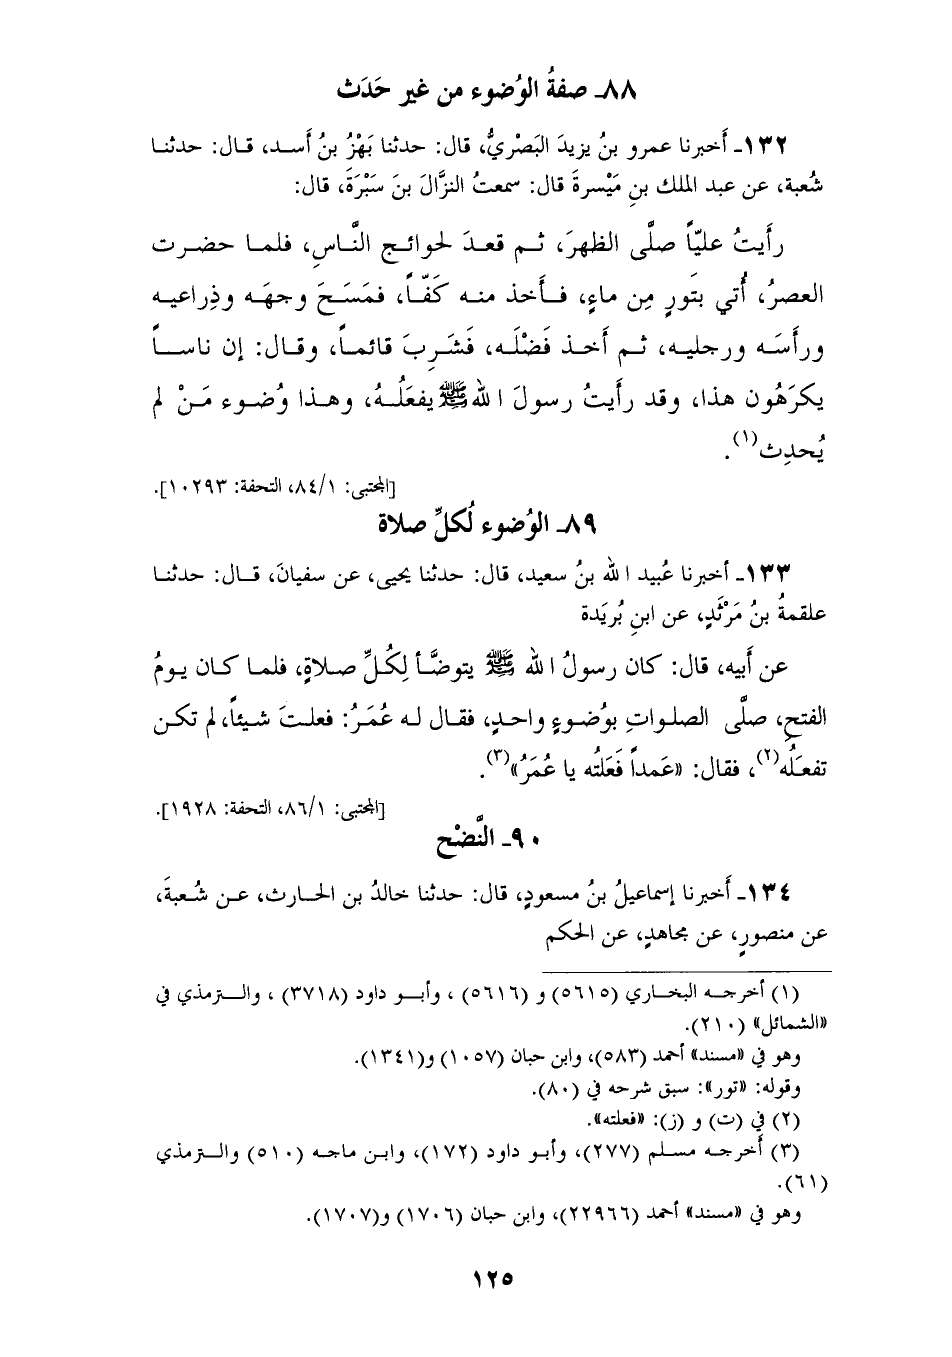 ٨٨ـ صفةُ الوُضوء من غير حَدَث
١٣٢ـ أَخبرنا عمرو بنُ يزيدَ البَصْريُّ، قال: حدثنا بَهْزُ بنُ أَسد، قال: حدثنا
شُعبة، عن عبد الملك بنِ مَيْسرةَ قال: سمعتُ النزَّالَ بنَ سَبْرَةَ، قال:
رأَيتُ عليّاً صلَّى الظهرَ، ثم قعدَ لحوائج النَّاسِ، فلما حضرت
العصرُ، أُتي بتَورٍ مِن ماءٍ، فأخذ منه كَفّاً، فمَسَحَ وجهَه وذِراعيه
ورأسَه ورجليه، ثم أَخذ فَضْلَه، فَشَرِبَ قائماً، وقال: إن ناساً
يكرَهُون هذا، وقد رأَيتُ رسولَ الله ﷺ يفعَلُهُ، وهذا وُضوء مَنْ لم
يُحدِث(١).
[المجتبى: ٨٤/١، التحفة: ١٠٢٩٣].
٨٩ـ الوُضوء لُكلِّ صلاة
١٣٣ـ أخبرنا عُبيد الله بنُ سعيد، قال: حدثنا يحيى، عن سفيانَ، قال: حدثنا
علقمةُ بنُ مَرْثَدٍ، عن ابنِ بُريَدة
عن أَبيه، قال: كان رسولُ الله ﷺ يتوضَّأ لِكُلِّ صلاةٍ، فلما كان يومُ
الفتحِ، صلَّى الصلواتِ بوُضوءٍ واحدٍ، فقال له عُمَرُ: فعلتَ شيئاً، لم تكن
تفعَلُه(٢)، فقال: «عَمداً فَعَلتُه يا عُمَرُ»(٣).
[المجتبى: ٨٦/١، التحفة: ١٩٢٨].
٩٠ـ النَّضْح
١٣٤ـ أَخبرنا إسماعيلُ بنُ مسعودٍ، قال: حدثنا خالدُ بن الحارث، عن شُعبةَ،
عن منصورٍ، عن مجاهدٍ، عن الحكم
(١) أخرجه البخاري (٥٦١٥) و (٥٦١٦) ، وأبو داود (٣٧١٨) ، والترمذي في
«الشمائل» (٢١٠).
وهو في «مسند» أحمد (٥٨٣)، وابن حبان (١٠٥٧) و(١٣٤١).
وقوله: «تور»: سبق شرحه في (٨٠).
(٢) في (ت) و (ز): «فعلته».
(٣) أخرجه مسلم (٢٧٧)، وأبو داود (١٧٢)، وابن ماجه (٥١٠) والترمذي
(٦١).
وهو في «مسند» أحمد (٢٢٩٦٦)، وابن حبان (١٧٠٦) و(١٧٠٧).
١٢٥